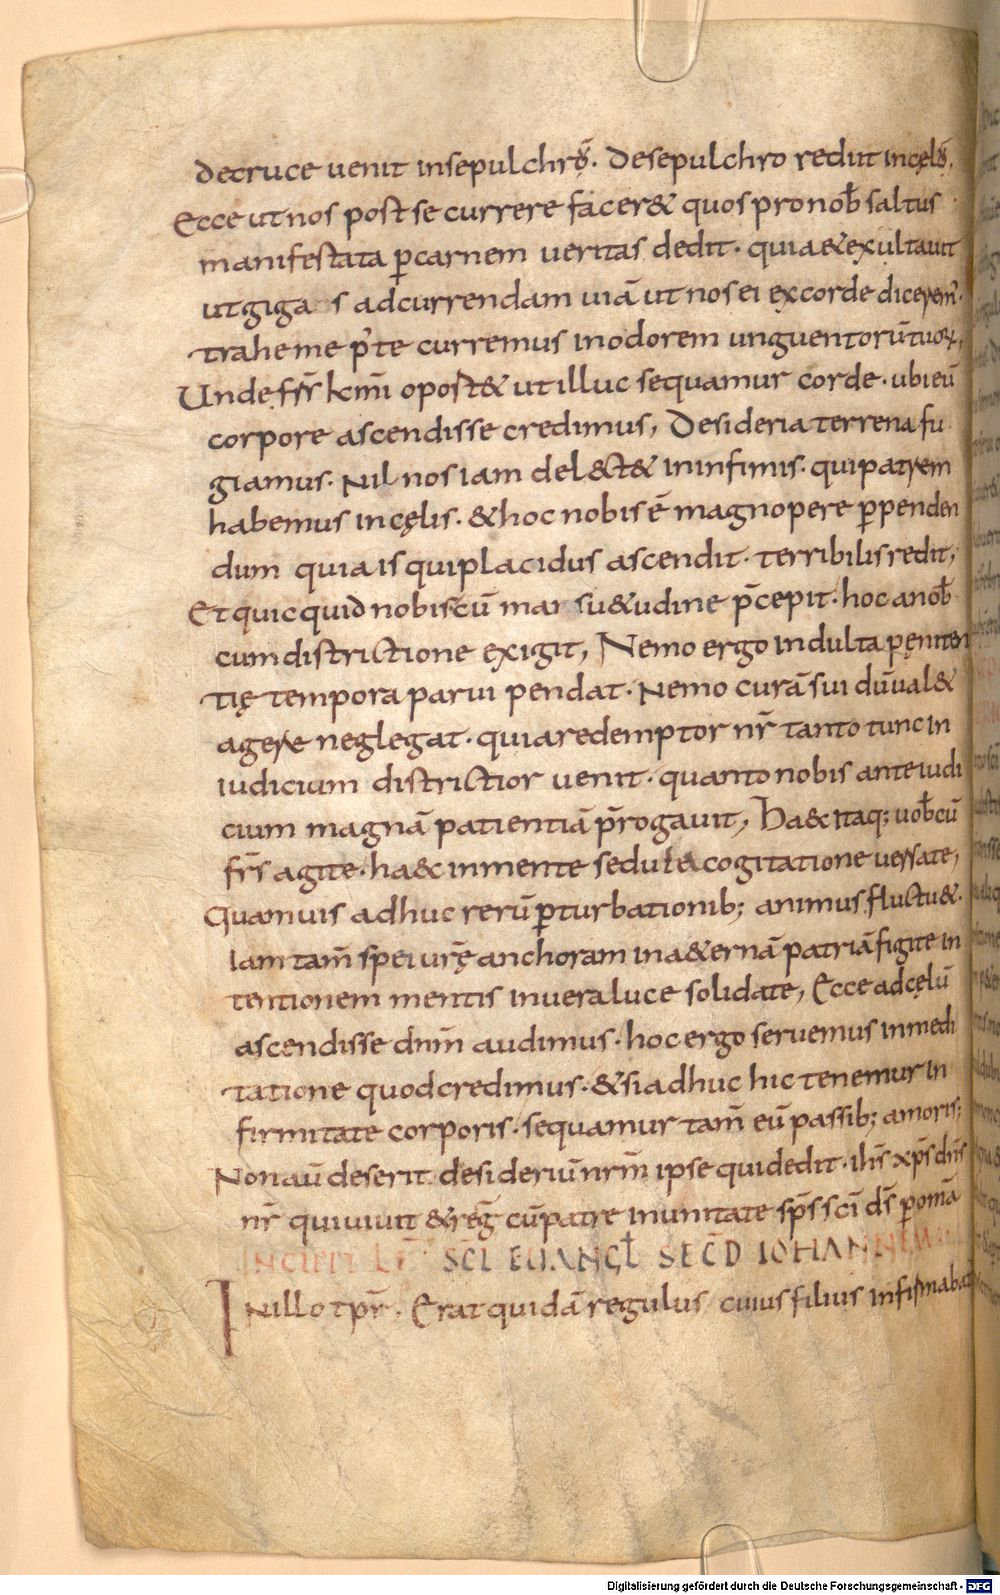 decruce uenit insepulchrū. Desepulchro rediit incęlū.
Ecce ut nos post se currere facer& quos pro nob̄ saltus
manifestata p̄carnem ueritas dedit. quia & exultauit
ut giga s adcurrendam uiā ut nos ei ex corde dicerem᾽.
trahe me p᾽ te curremus inodorem unguentorū tuoꝝ,
Unde fr̄s km̄i oport& ut illuc sequamur corde. ubi eū
corpore ascendisse credimus, Desideria terrena fu
giamus. Nil nos iam del&t& ininfimis. qui patrem
habemus incęlis. & hoc nobis ē magnopere p̄penden
dum quia is qui placidus ascendit. terribilis redit,
Et quicquid nobis cū man su&udine p̄cepit. hoc anob̄
cum districtione exigit, Nemo ergo indulta pęniten
tię tempora parui pendat. Nemo curā sui dū ual&
agere neglegat. quia redemptor nr̄ tanto tunc in
iudicium districtior uenit. quanto nobis ante iudi
cium magnā patientiā p̄rogauit, Ha&c itaq; uob̄cū
fr̄s agite. ha&c inmente sedula cogitatione uersate,
Quamuis adhuc rerū p̄turbationib; animus fluctu&.
Iam tam̄ spei ur̄ę anchoram ina&ernā patriā figite in
tentionem mentis inuera luce solidate, Ecce adcęlū
ascendisse dn̄m audimus. hoc ergo seruemus inmedi
tatione quod credimus. & si adhuc hic tenemur in
firmitate corporis. sequamur tam̄ eū passib; amoris;
Non aū deserit desideriū nr̄m ipse qui dedit. ih̄s xp̄s dn̄s
nr̄ qui uiuit & reḡ cū patre inunitate sp̄s sc̄i ds̄ p̄ omā
INCIPIT SC̄I EUANGL̄ SEC̄D IOHANNEM
INillo tp̄r. Erat quidā regulus cuius filius infirmabat